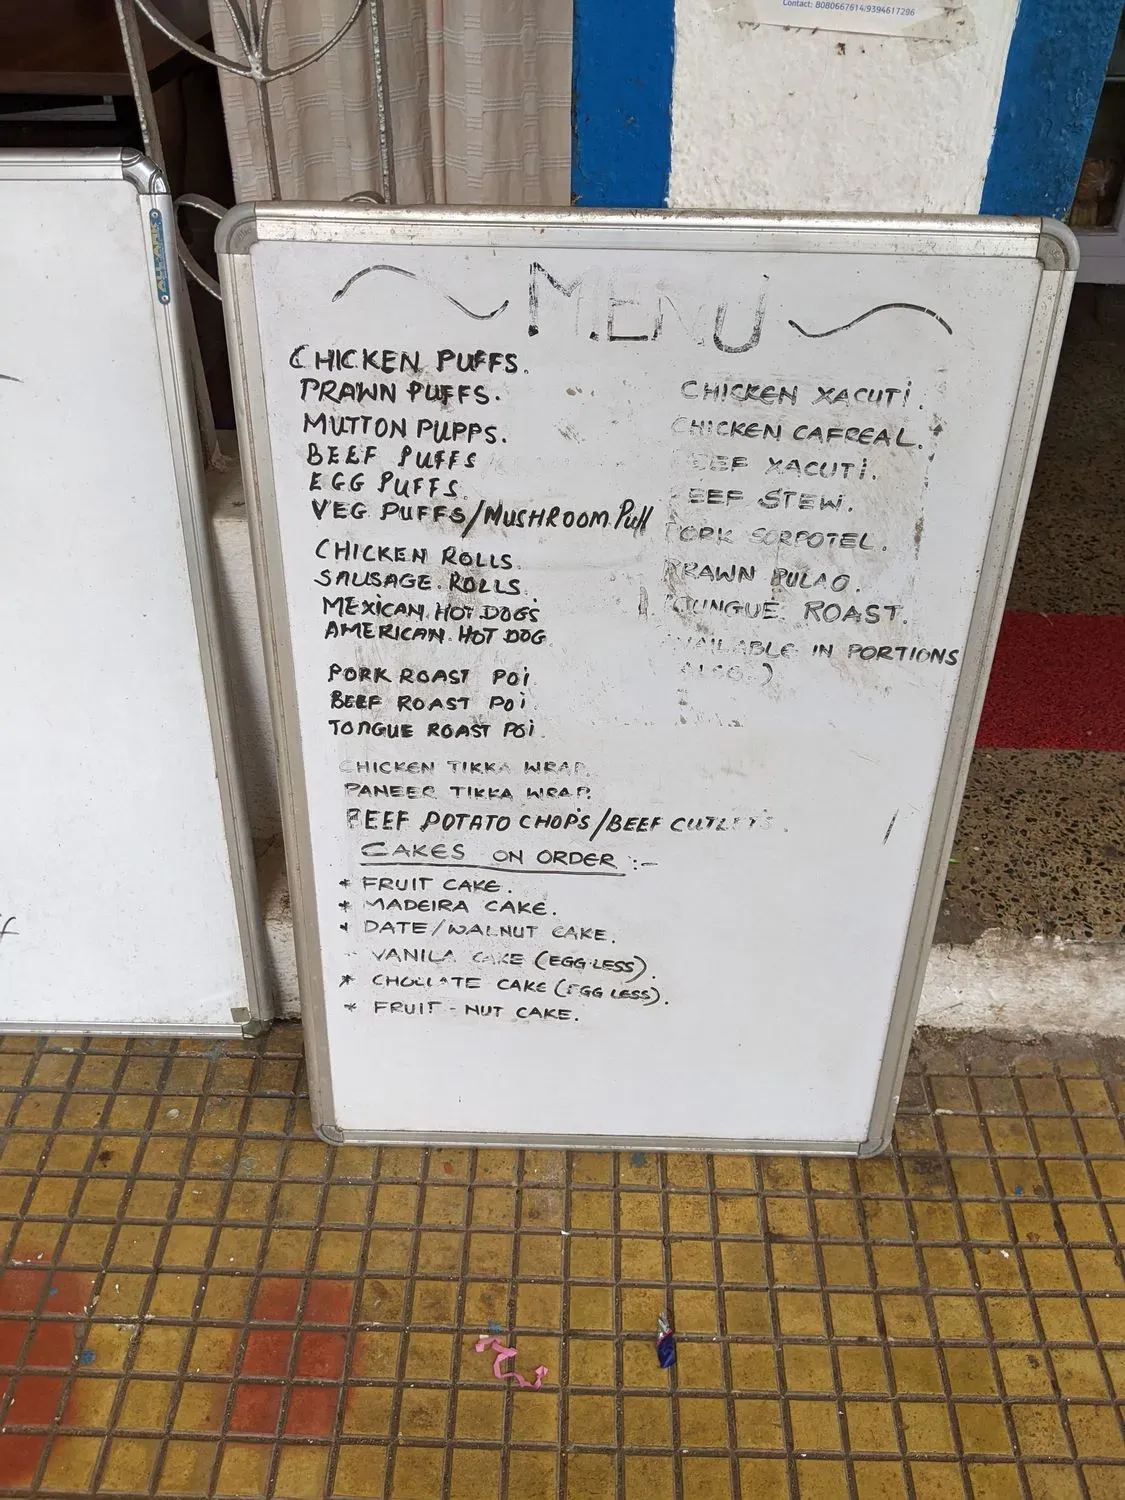 Contact: 8080667614/9394617296
MENU
CHICKEN PUFFS.
PRAWN PUFFS.
MUTTON PUPPS.
BEEF PUFFS
EGG PUFFS.
VEG PUFFS/MUSHROOM Puff
CHICKEN ROLLS.
SAUSAGE ROLLS.
MEXICAN HOT DOGS
AMERICAN HOT DOG
PORK ROAST POi.
BEEF ROAST POi.
TONGUE ROAST POi.
CHICKEN TIKKA WRAP.
PANEER TIKKA WRAP.
BEEF POTATO CHOPS/BEEF CUTLETS.
CHICKEN XACUTi.
CHICKEN CAFREAL.
BEEF XACUTi.
BEEF STEW.
PORK SORPOTEL.
PRAWN PULAO.
TUNGUE ROAST.
AVAILABLE IN PORTIONS
ALSO.)
CAKES ON ORDER :-
* FRUIT CAKE.
* MADEIRA CAKE.
* DATE/WALNUT CAKE.
VANILA CAKE (EGG LESS).
* CHOCLATE CAKE (EGG LESS).
* FRUIT - NUT CAKE.